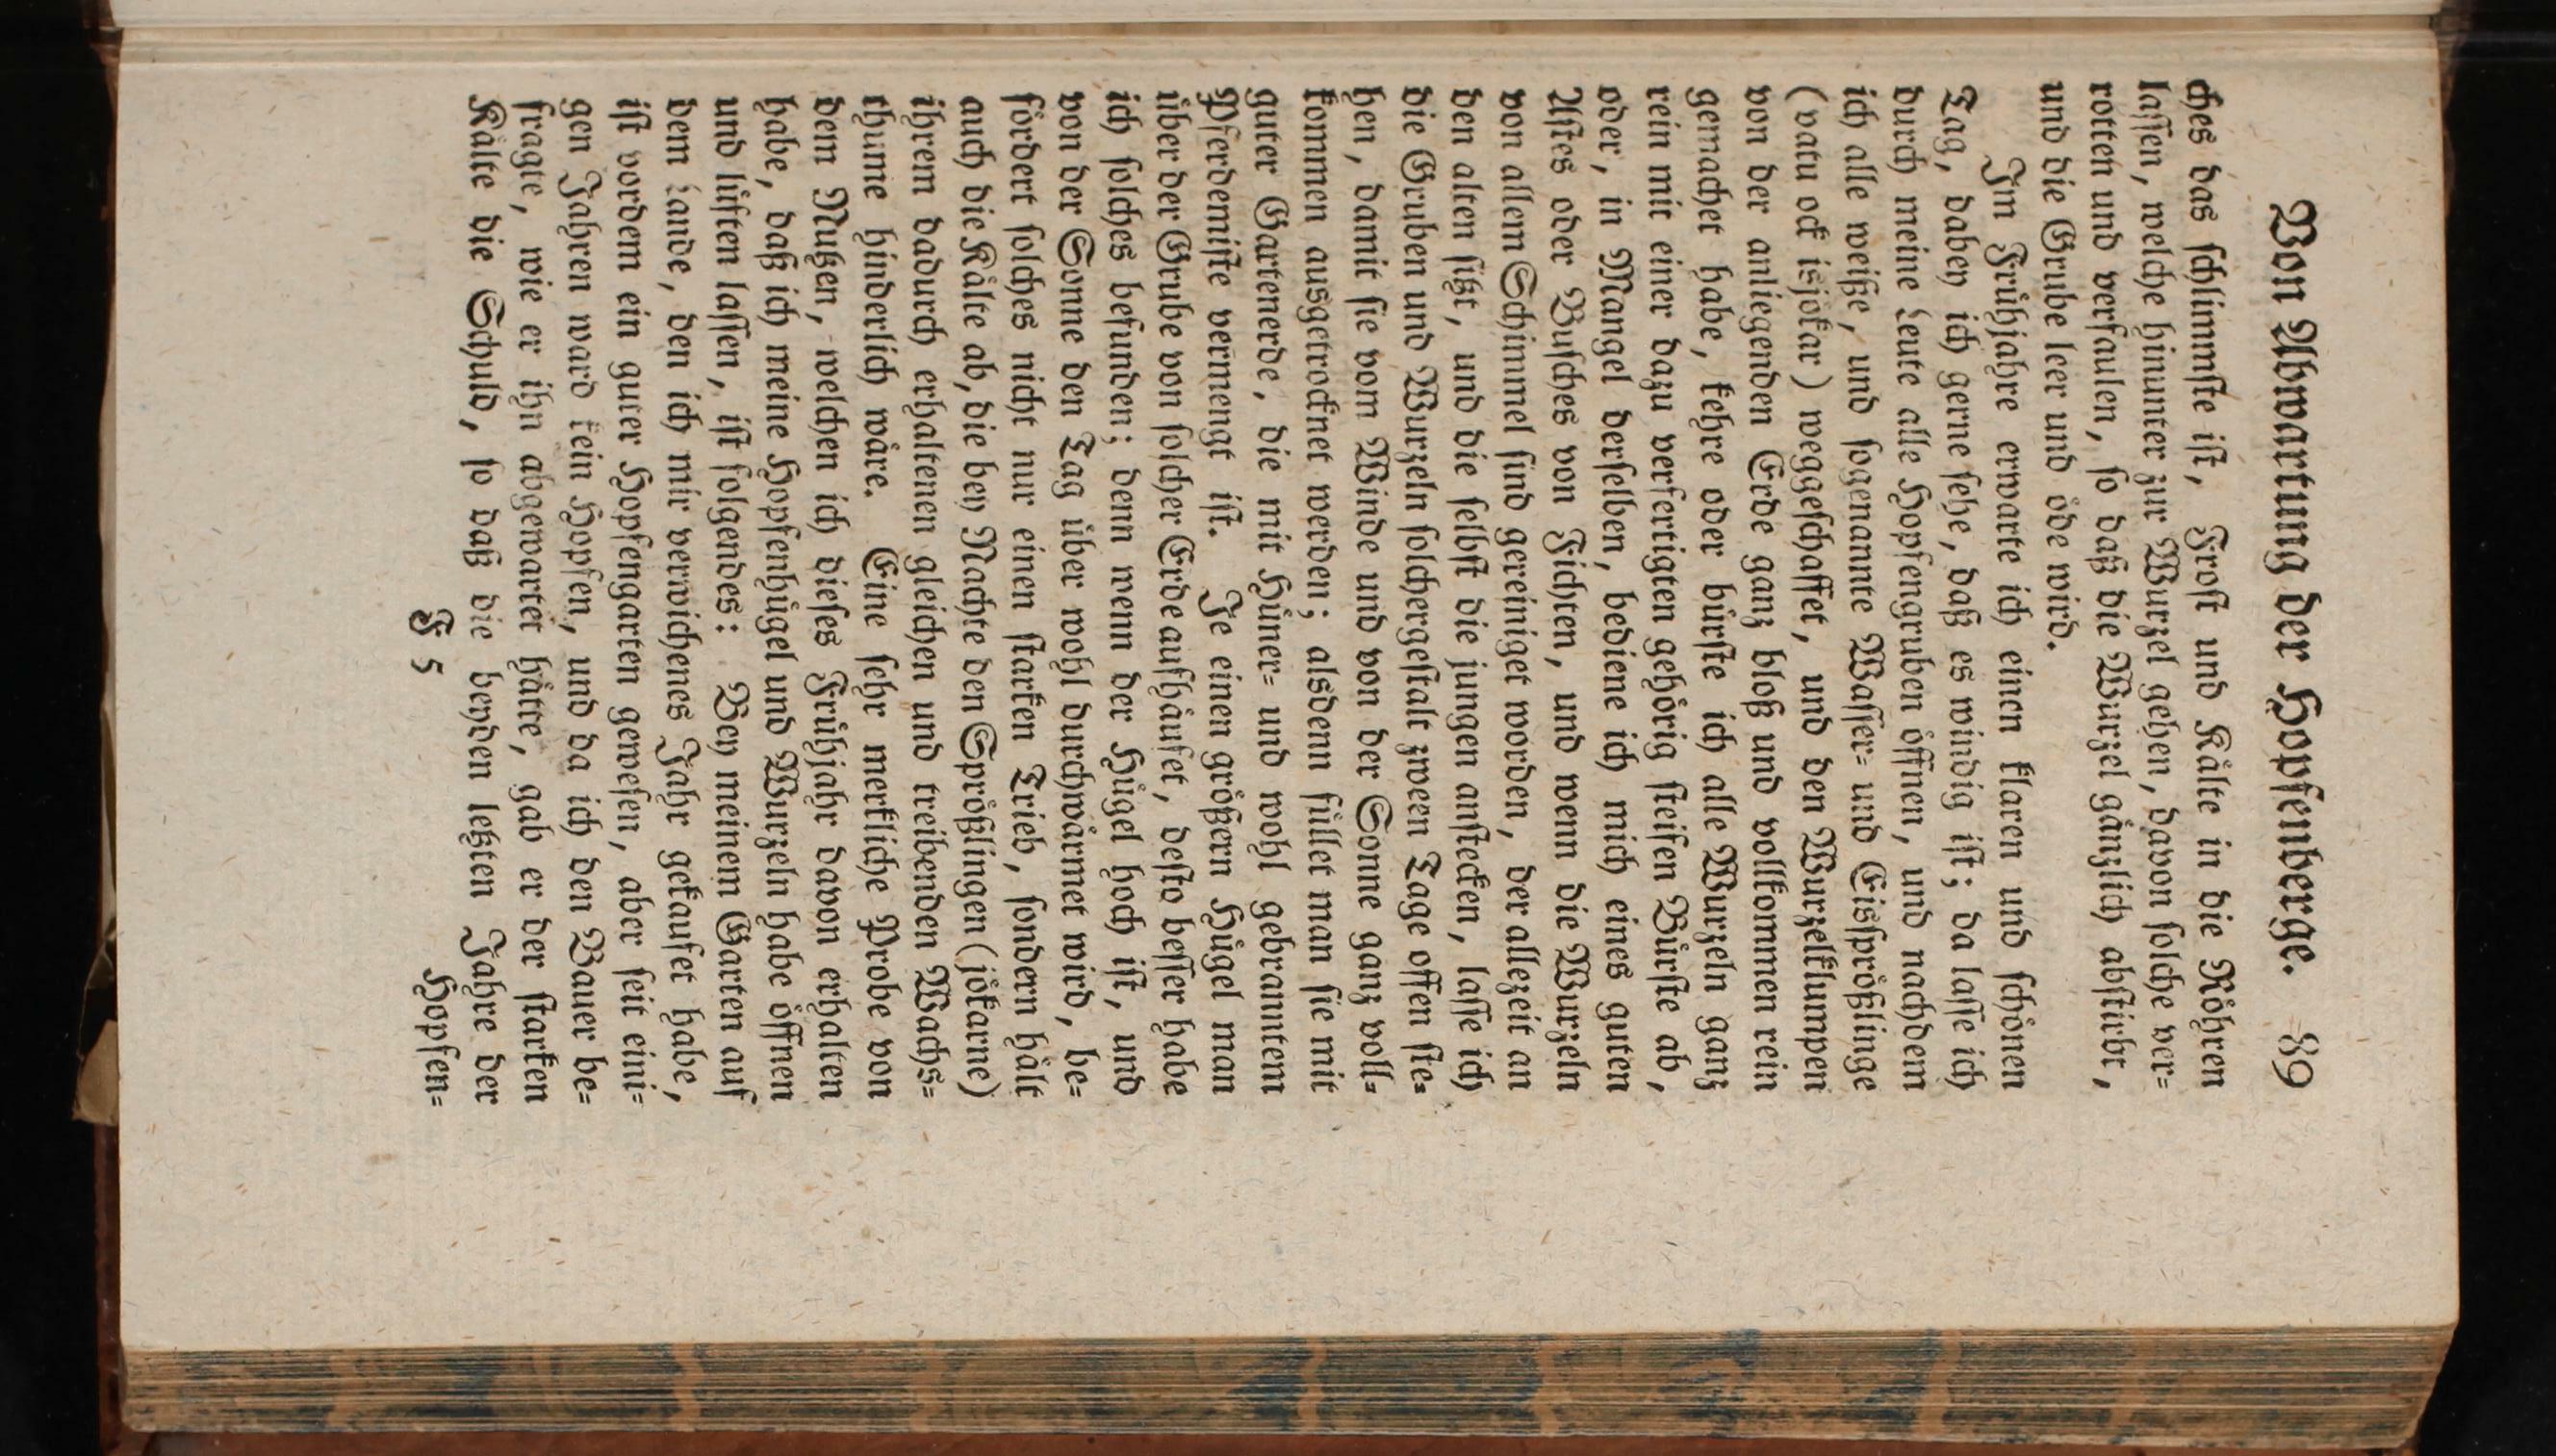 Von Abwartung der Hopfenberge. 89
ches das ſchlimmſte iſt, Froſt und Kålte in die Rőhren
laſſen, welche hinunter zur Wurzel gehen, davon ſolche ver=
rotten und verfaulen, ſo daß die Wurzel gånzlich abſtirbt,
und die Grube leer und őde wird.
Im Frůhjahre erwarte ich einen klaren und ſchőnen
Tag, dabey ich gerne ſehe, daß es windig iſt; da laſſe ich
durch meine Leute alle Hopfengruben őffnen, und nachdem
ich alle weiße, und ſogenannte Waſſer= und Eisſprőßlinge
(vatu ock isjokar) weggeſchaffet, und den Wurzelklumpen
von der anliegenden Erde ganz bloß und vollkommen rein
gemachet habe, kehre oder bůrſte ich alle Wurzeln ganz
rein mit einer dazu verfertigten gehőrig ſteifen Bůrſte ab,
oder, in Mangel derſelben, bediene ich mich eines guten
Aſtes oder Buſches von Fichten, und wenn die Wurzeln
von allem Schimmel ſind gereiniget worden, der allezeit an
den alten ſitzt, und die ſelbſt die jungen anſtecken, laſſe ich
die Gruben und Wurzeln ſolchergeſtalt zween Tage offen ſte=
hen, damit ſie vom Winde und von der Sonne ganz voll=
kommen ausgetrocknet werden; alsdenn füllet man ſie mit
guter Gartenerde, die mit Hůner= und wohl gebranntem
Pferdemiſte vermengt iſt. Je einen größern Hůgel man
über der Grube von ſolcher Erde aufhåufet, deſto beſſer habe
ich ſolches befunden; denn wenn der Hůgel hoch iſt, und
von der Sonne den Tag über wohl durchwårmet wird, be=
fördert ſolches nicht nur einen ſtarken Trieb, ſondern hålt
auch die Kålte ab, die bey Nachte den Sprößlingen (jökarne)
ihrem dadurch erhaltenen gleichen und treibenden Wachs=
thume hinderlich wåre. Eine ſehr merkliche Probe von
dem Nutzen, welchen ich dieſes Frůhjahr davon erhalten
habe, daß ich meine Hopfenhůgel und Wurzeln habe öffnen
und lüften laſſen, iſt folgendes: Bey meinem Garten auf
dem Lande, den ich mir verwichenes Jahr gekaufet habe,
iſt vordem ein guter Hopfengarten geweſen, aber ſeit eini=
gen Jahren ward kein Hopfen, und da ich den Bauer be=
fragte, wie er ihn abgewartet håtte, gab er der ſtarken
Kålte die Schuld, ſo daß die beyden letzten Jahre der
F 5 Hopfen=